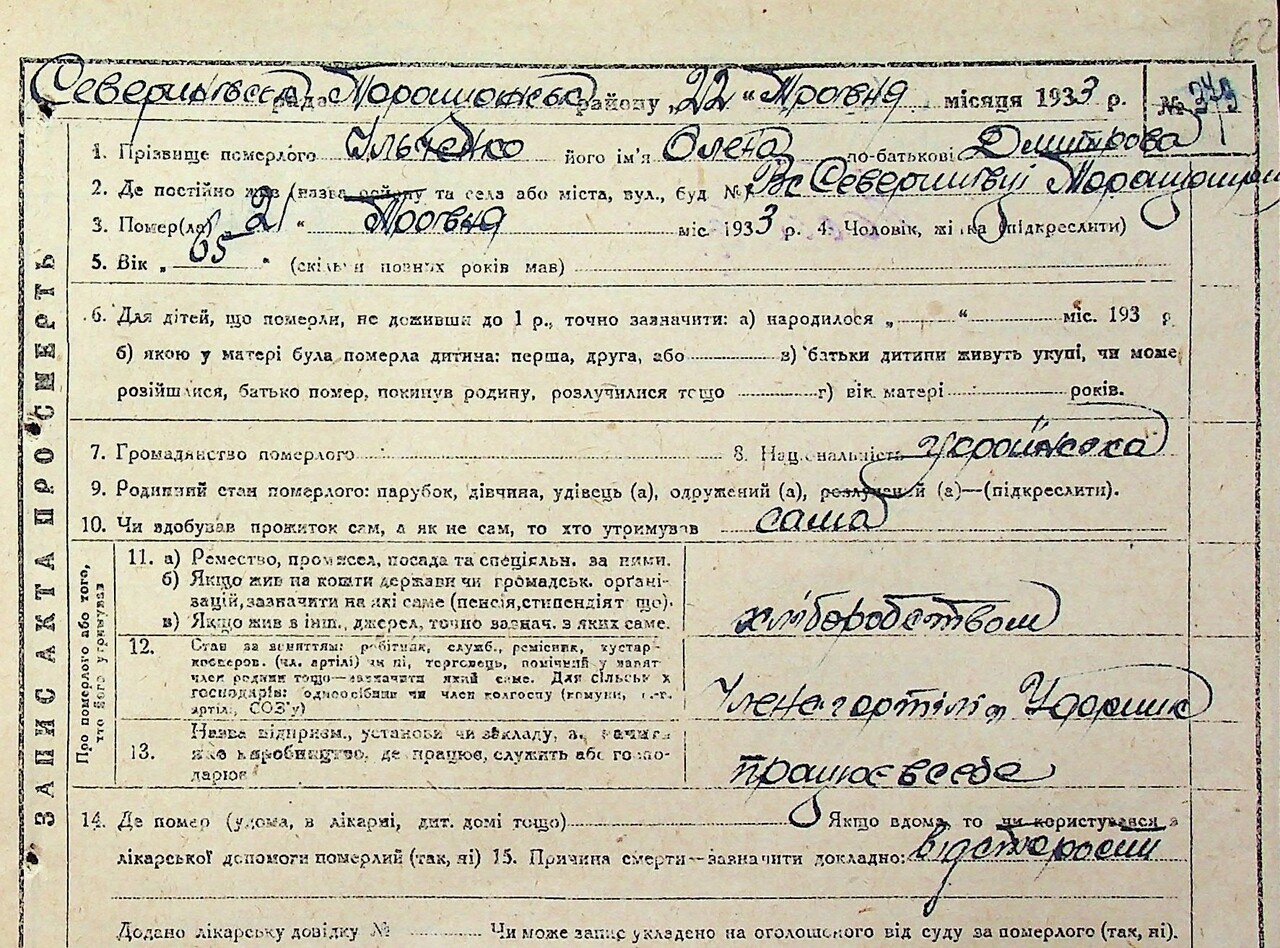 62
Северинівська рада Таращанського району „22“ Травня місяця 1933 р. № 249
1. Прізвище померлого Ільченко його ім'я Олена по-батькові Дмитрова
2. Де постійно жив (назва району та села або міста, вул., буд № Вс Северинівці Таращанськ
3. Помер(ла) „21“ Травня міс. 1933 р. 4. Чоловік, жінка (підкреслити)
5. Вік „65“ (скільки повних років мав)
6. Для дітей, що померли, не доживши до 1 р., точно зазначити: а) народилося „ “ міс. 193 р.
б) якою у матері була померла дитина: перша, друга, або в) батьки дитини живуть укупі, чи може
розійшлися, батько помер, покинув родину, розлучилися тощо г) вік матері років.
7. Громадянство померлого 8. Національність українська
9. Родинний стан померлого: парубок, дівчина, удівець (а), одружений (а), розлучений (а)—(підкреслити).
10. Чи здобував прожиток сам, а як не сам, то хто утримував сама
ЗАПИС АКТА ПРО СМЕРТЬ
Про померлого або того, хто його утримував
11. а) Ремество, промисел, посада та спеціяльн. за ними.
б) Якщо жив на кошти держави чи громадськ. орґані-
зацій, зазначити на які саме (пенсія, стипендіят що).
в) Якщо жив в інш., джерел, точно зазнач. з яких саме.
хліборобством
12. Стан за заняттям: робітник, служб., ремісник, кустар-
кооперов. (чл. артілі) чи ні, торговець, помічний у занят
член родини тощо—зазначити який саме. Для сільськ х
господарів: одноосібник чи член колгоспу (комуни, с.-г.
артілі, СОЗ'у)
Член артілі Ударник
13. Назва підприєм., установи чи закладу, зазначив
яке виробництво, де працює, служить або госпо-
дарює
працює в себе
14. Де помер (удома, в лікарні, дит. домі тощо) Якщо вдома, то чи користувався з
лікарської допомоги померлий (так, ні) 15. Причина смерти—зазначити докладно: від старости
Додано лікарську довідку № Чи може запис укладено на оголошеного від суду за померлого (так, ні).